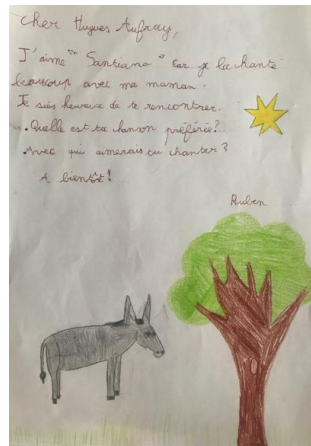 Cher Hugues Aufray,
J'aime "Santiano" car je la chante
beaucoup avec ma maman.
Je suis heureux de te rencontrer.
. Quelle est ta chanson préférée?
. Avec qui aimerais tu chanter?
A bientôt!
Ruben